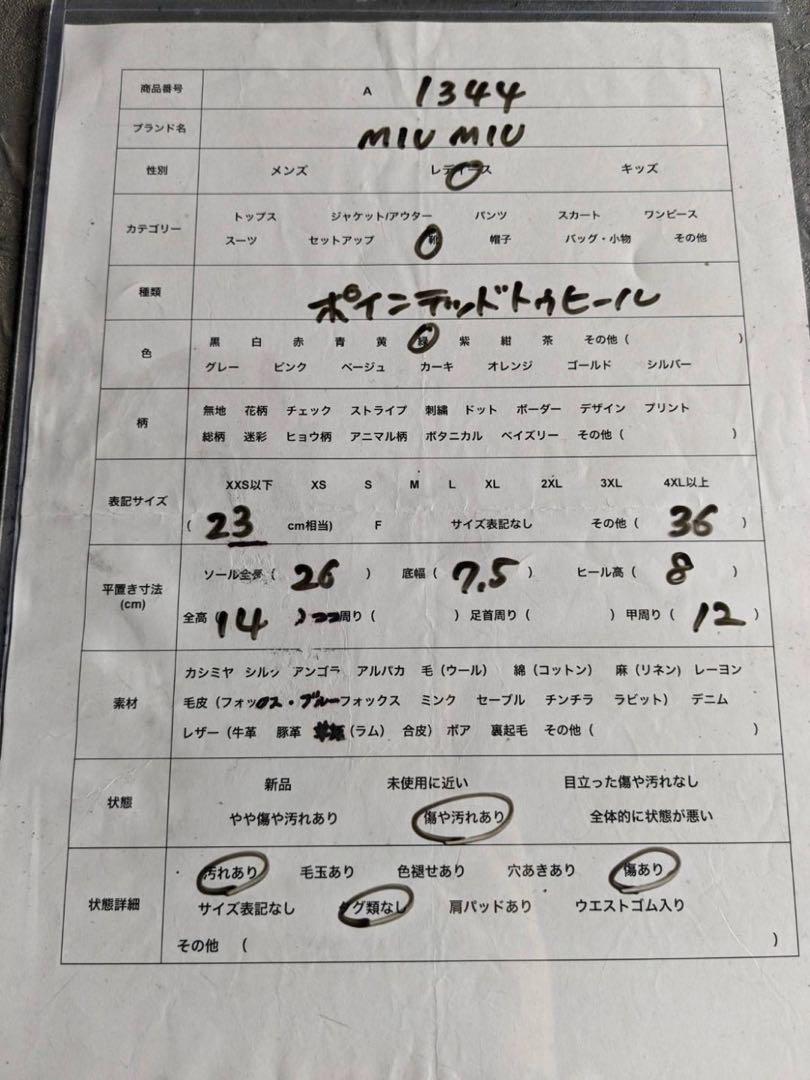 商品番号 A 1344
ブランド名 MIU MIU
性別 メンズ レディース キッズ
カテゴリー
トップス ジャケット/アウター パンツ スカート ワンピース
スーツ セットアップ 靴 帽子 バッグ・小物 その他
種類 ポインテッドトゥヒール
色
黒 白 赤 青 黄 緑 紫 紺 茶 その他 ( )
グレー ピンク ベージュ カーキ オレンジ ゴールド シルバー
柄
無地 花柄 チェック ストライプ 刺繍 ドット ボーダー デザイン プリント
総柄 迷彩 ヒョウ柄 アニマル柄 ボタニカル ペイズリー その他 ( )
表記サイズ
XXS以下 XS S M L XL 2XL 3XL 4XL以上
( 23 cm相当) F サイズ表記なし その他 ( 36 )
平置き寸法
(cm)
ソール全長 ( 26 ) 底幅 ( 7.5 ) ヒール高 ( 8 )
全高 ( 14 ) 周り ( ) 足首周り ( ) 甲周り ( 12 )
素材
カシミヤ シルク アンゴラ アルパカ 毛 (ウール) 綿 (コットン) 麻 (リネン) レーヨン
毛皮 (フォックス・ブルーフォックス ミンク セーブル チンチラ ラビット) デニム
レザー (牛革 豚革 (ラム) 合皮) ボア 裏起毛 その他 ( )
状態
新品 未使用に近い 目立った傷や汚れなし
やや傷や汚れあり 傷や汚れあり 全体的に状態が悪い
状態詳細
汚れあり 毛玉あり 色褪せあり 穴あきあり 傷あり
サイズ表記なし タグ類なし 肩パッドあり ウエストゴム入り
その他 ( )